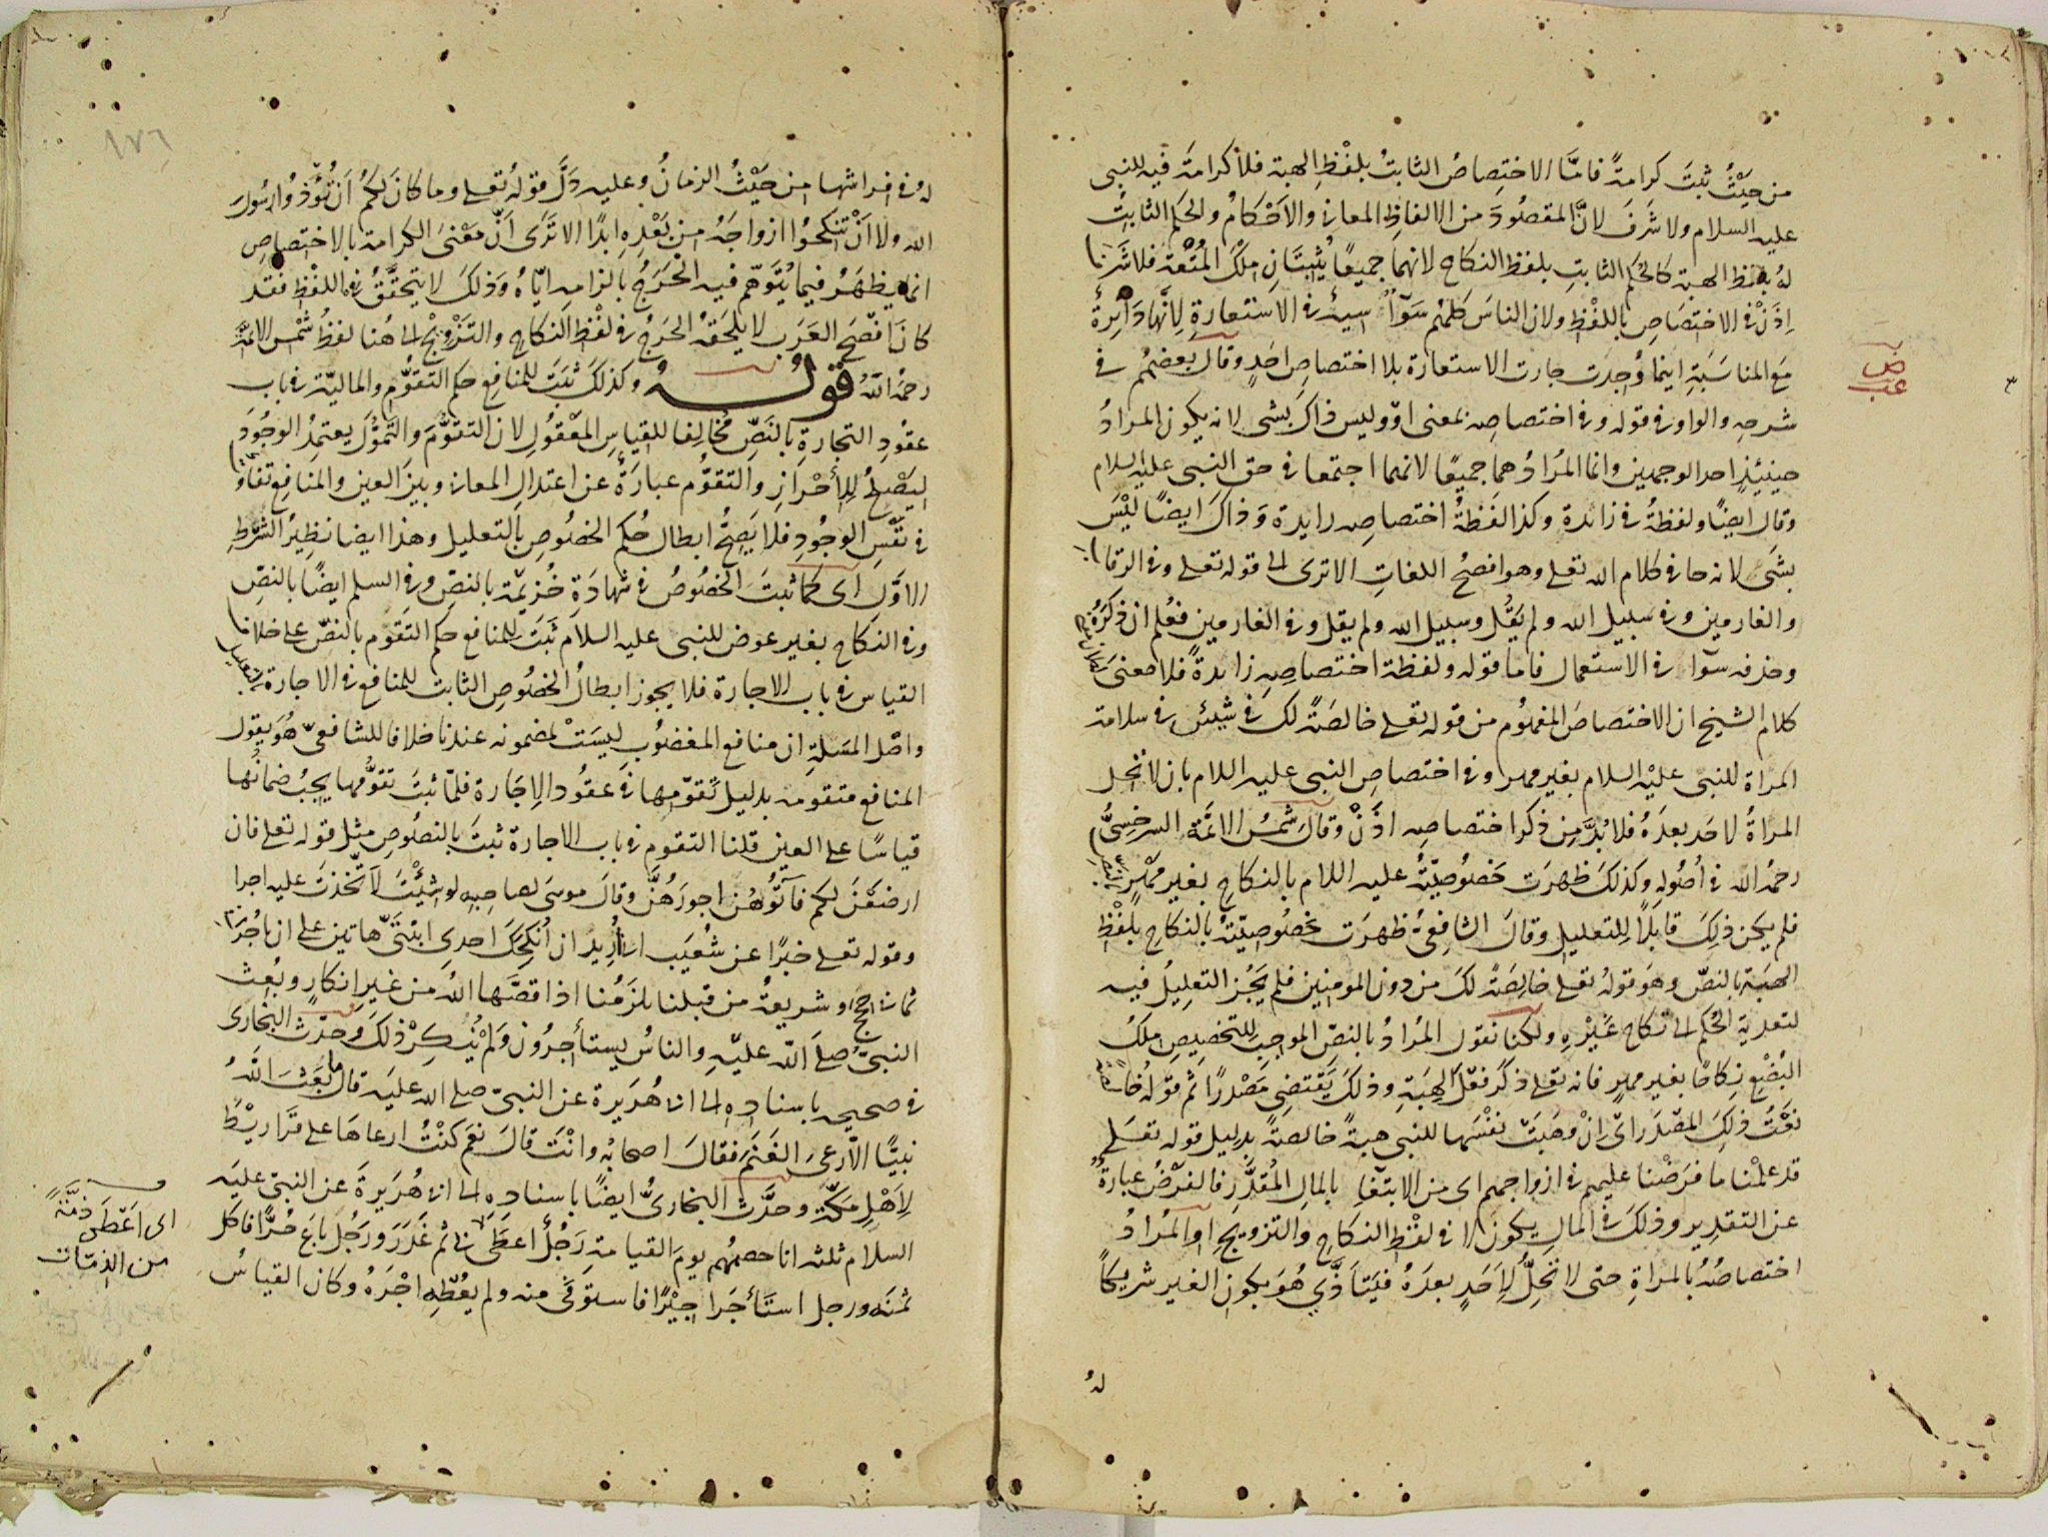 من حيث ثبت كرامة فامّا الاختصاص الثابت بلفظ الهبة فلا كرامة فيه للنبى
عليه السلام ولا شرف لانّ المقصود من الالفاظ المعانى والاحكام والحكم الثابت
له بلفظ الهبة كالحكم الثابت بلفظ النكاح لانهما جميعًا يُثبتان ملك المتعة فلا شرفا
اذن فى الاختصاص باللفظ ولان الناس كلهم سوآء سيئ فى الاستعارة لانّها دائرة
مع المناسبة اينما وُجدت جازت الاستعارة بلا اختصاص احد وقال بعضهم فى
شرحه والواو فى قوله وفى اختصاصه بمعنى او وليس ذاك بشى لانه يكون المراد
حينئذ احد الوجهين وانما المُراد هما جميعًا لانهما اجتمعا فى حق النبى عليه السلام
وقال ايضًا ولفظة فى زائدة وكذا لفظة اختصاصه زايدة وذاك ايضًا ليس
بشى لانه جا فى كلام الله تعلى وهو افصح اللغات الا ترى الى قوله تعلى وفى الرقاب
والغارمين وفى سبيل الله ولم يقُل وسبيل الله ولم يقل وفى الغارمين فعُلم ان ذكره
وحذفه سوآء فى الاستعمال فاما قوله ولفظة اختصاصه زايدةً فلا معنى
كلام الشيخ ان الاختصاص المفهوم من قوله تعلى خالصةً لك فى شيئين فى سلامة
المراة للنبى عليه السلام بغير مهر وفى اختصاص النبى عليه اللام بان لا تحل
المراةُ لاحد بعده فلا بُدّ من ذكر اختصاصه اذن وقال شمس الائمة السرخسىّ
رحمه الله فى اصوله وكذلك ظهرت خصوصيّته عليه اللام بالنكاح بغير مهر بالنص
فلم يكن ذلك قابلًا للتعليل وقال الشافعى ظهرت خصوصيّته بالنكاح بلفظ
الهبة بالنصّ وهو قوله تعلى خالصةً لك من دون المومنين فلم يجُز التعليل فيه
لتعدية الحُكم الى نكاح غيره ولكنا نقول المُراد بالنصّ الموجب للتخصيص ملك
البُضع نكاحًا بغير مهر فانه تعلى ذكر فعل الهبة وذلك يقتضى مصدرًا ثم قوله خالصة
نعت ذلك المصدر اى ان وهبت نفسها للنبى هبةً خالصةً بدليل قوله تعلى
قد علمنا ما فرضنا عليهم فى ازواجهم اى من الابتغآء بالمال المقدّر فالفرض عبارةٌ
عن التقدير وذلك فى المال يكون لا فى لفظ النكاح والتزويج او المراد
اختصاصُه بالمراة حتى لا تحلّ لاحد بعده فيتاذّى هو بكون الغير شريكًا
له
ض
عب
٣
١٧٦
له فى افراشها من حيث الزمان وعليه دلّ قوله تعلى وما كان لكم ان تؤذوا رسول
الله ولا ان تنكحوا ازواجه من بعده ابدًا الا ترى انّ معنى الكرامة بالاختصاص
انما يظهر فيما يُتوهّم فيه الحرج بالزامه ايّاه وذلك لا يتحقّق فى اللفظ فقد
كان افصح العرب لا يلحقه الحرج فى لفظ النكاح والتزويج الى هنا لفظ شمس الائمة
رحمه الله قوله وكذلك ثبت للمنافع حكم التقوّم والماليّة فى باب
عقود التجارة بالنصّ مخالفا للقياس المعقول لان التقوّم والتموّل يعتمد الوجود
ليصلح للاحراز والتقوّم عبارةٌ عن اعتدال المعانى وبين العين والمنافع تفاوت
فى نفس الوجود فلا يصحّ ابطال حُكم الخصوص بالتعليل وهذا ايضا نظير الشرط
الاوّل اى كما ثبت الخصوص فى شهادة خُزيمة بالنصّ وفى السلم ايضًا بالنصّ
وفى النكاح بغير عوض للنبى عليه السلام ثبت للمنافع حكم التقوّم بالنصّ على خلاف
القياس فى باب الاجارة فلا يجوز ابطال الخصوص الثابت للمنافع فى الاجارة بالتعليل
واصل المسلة ان منافع المغصوب ليست لمضمونه عندنا خلافا للشافعىّ هو يقول
المنافع متقومه بدليل تقوّمها فى عقود الاجارة فلمّا ثبت تقوّمها يجب ضمانُها
قياسًا على العين قلنا التقوم فى باب الاجارة ثبت بالنصوص مثل قوله تعلى فان
ارضعن لكم فآتوهُن اجورهُنّ وقال موسى لصاحبه لو شئت لاتّخذت عليه اجرا
وقوله تعلى خبرًا عن شُعيب انى اُريد ان اُنكحك احدى ابنتىّ هاتين على ان تاجُرنى
ثمانى حجج وشريعةُ من قبلنا يلزمُنا اذا قصّها الله من غير انكار وبُعث
النبىّ صلى الله عليه والناسُ يستأجرون ولم يُنكر ذلك وحدّث البخارى
فى صحيحه باسناده الى ابى هُريرة عن النبىّ صلى الله عليه قال ما بعث الله
نبيًّا الّا رعى الغنم فقال اصحابُه وانت قال نعم كنت ارعاها على قراريط
لاهل مكّة وحدّث البخارىّ ايضًا باسناده الى ابى هُريرة عن النبى عليه
السلام ثلثه انا خصمُهم يوم القيامة رجلٌ اعطى بى ثم غدر ورجُل باع حُرًّا فاكل
ثمنه ورجل استأجر اجيرًا فاستوفى منه ولم يُعطه اجره وكان القياسُ
اى اعطى ذمّةً
من الذمّات